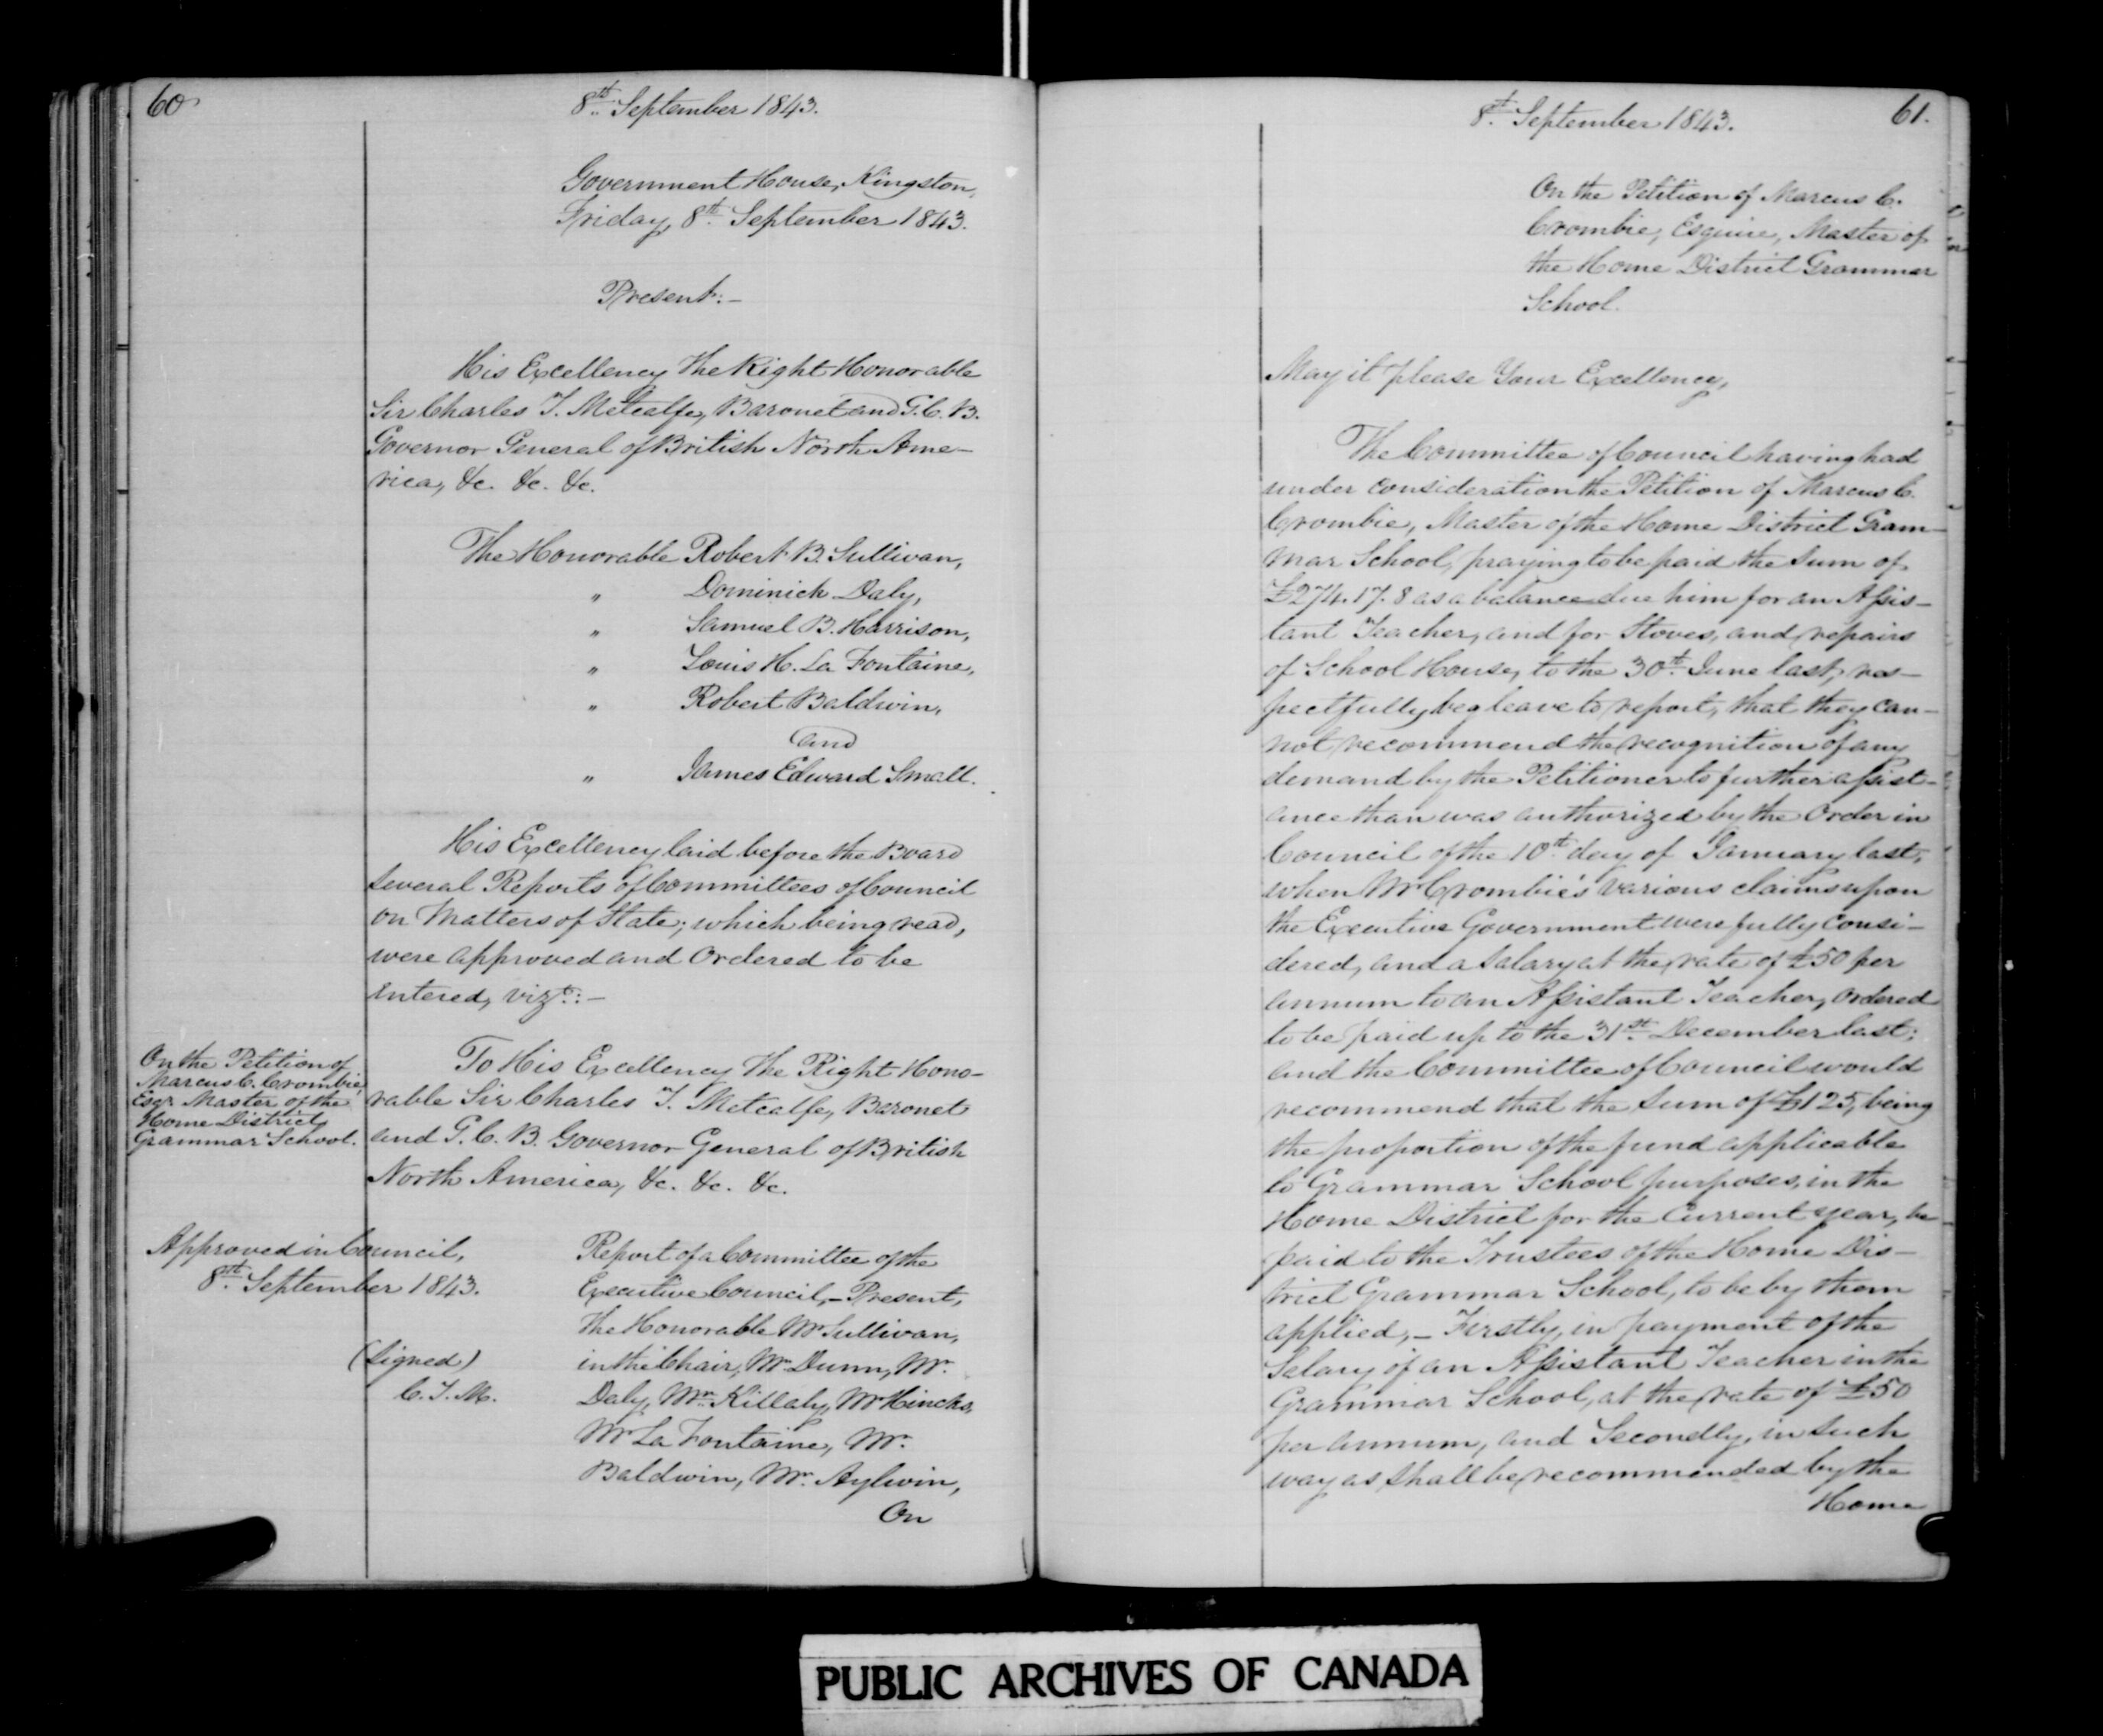 60
8th September 1843.
Government House, Kingston,
Friday, 8th September 1843.
Present:—
His Excellency The Right Honorable
Sir Charles T. Metcalfe, Baronet and G.C.B.
Governor General of British North Ame-
rica, &c. &c. &c.
The Honorable Robert B. Sullivan,
" Dominick Daly,
" Samuel B. Harrison,
" Louis H. La Fontaine,
" Robert Baldwin,
and
" James Edward Small.
His Excellency laid before the Board
several Reports of Committees of Council
on Matters of State; which being read,
were approved and Ordered to be
entered, vizt:—
On the Petition of
Marcus C. Crombie,
Esqr Master of the
Home District
Grammar School.
To His Excellency The Right Hono-
rable Sir Charles T. Metcalfe, Baronet
and G.C.B. Governor General of British
North America, &c. &c. &c.
Approved in Council,
8th September 1843.
(Signed)
C.T.M.
Report of a Committee of the
Executive Council,—Present,
The Honorable Mr Sullivan,
in the Chair, Mr Dunn, Mr.
Daly, Mr. Killaly, Mr Hincks,
Mr La Fontaine, Mr.
Baldwin, Mr. Aylwin,
On
8th September 1843.
61.
On the Petition of Marcus C.
Crombie, Esquire, Master of
the Home District Grammar
School.
May it please Your Excellency,
The Committee of Council having had
under consideration the Petition of Marcus C.
Crombie, Master of the Home District Gram-
mar School, praying to be paid the sum of
£274.17.8 as a balance due him for an Assis-
tant Teacher, and for Stoves, and repairs
of School House, to the 30th June last, res-
pectfully beg leave to report, that they can-
not recommend the recognition of any
demand by the Petitioner to further assist-
ance than was authorized by the Order in
Council of the 10th day of January last,
when Mr Crombie's various claims upon
the Executive Government were fully consi-
dered, and a salary at the rate of £50 per
annum to an Assistant Teacher, ordered
to be paid up to the 31st December last;
and the Committee of Council would
recommend that the sum of £125, being
the proportion of the fund applicable
to Grammar School purposes, in the
Home District for the Current year, be
paid to the Trustees of the Home Dis-
trict Grammar School, to be by them
applied,— Firstly, in payment of the
Salary of an Assistant Teacher in the
Grammar School, at the rate of £50
per annum, and Secondly, in such
way as shall be recommended by the
Home
PUBLIC ARCHIVES OF CANADA